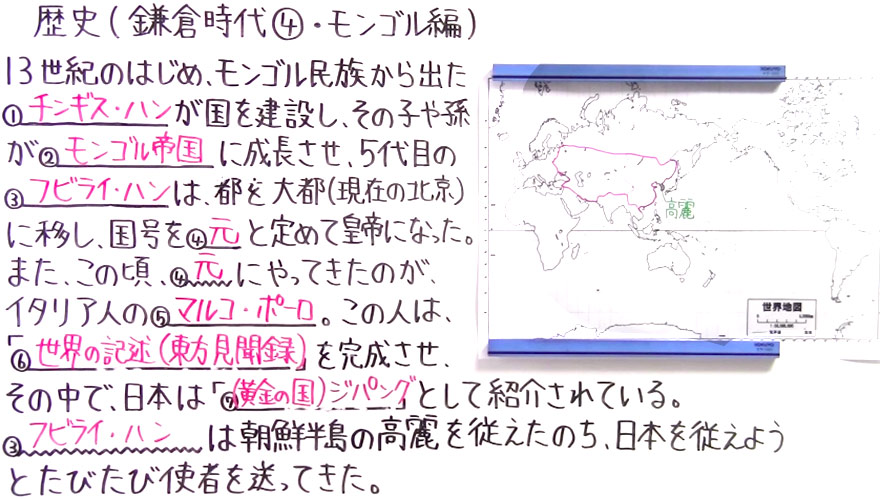 歴史(鎌倉時代④・モンゴル編)
13世紀のはじめ、モンゴル民族から出た
①チンギス・ハンが国を建設し、その子や孫
が②モンゴル帝国に成長させ、5代目の
③フビライ・ハンは、都を大都(現在の北京)
に移し、国号を④元と定めて皇帝になった。
また、この頃、④元にやってきたのが、
イタリア人の⑤マルコ・ポーロ。この人は、
「⑥世界の記述(東方見聞録)」を完成させ、
その中で、日本は「⑦(黄金の国)ジパング」として紹介されている。
③フビライ・ハンは朝鮮半島の高麗を従えたのち、日本を従えよう
とたびたび使者を送ってきた。
高麗
世界地図